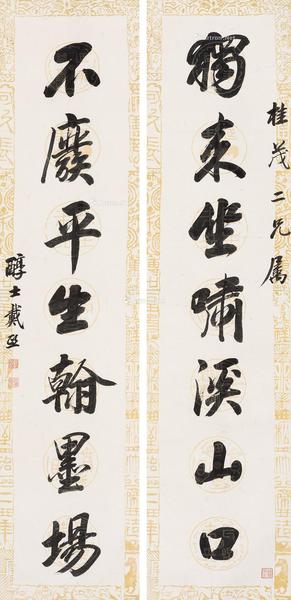 桂茂二兄属
獨来坐嘯溪山口
不廢平生翰墨場
醇士戴熙